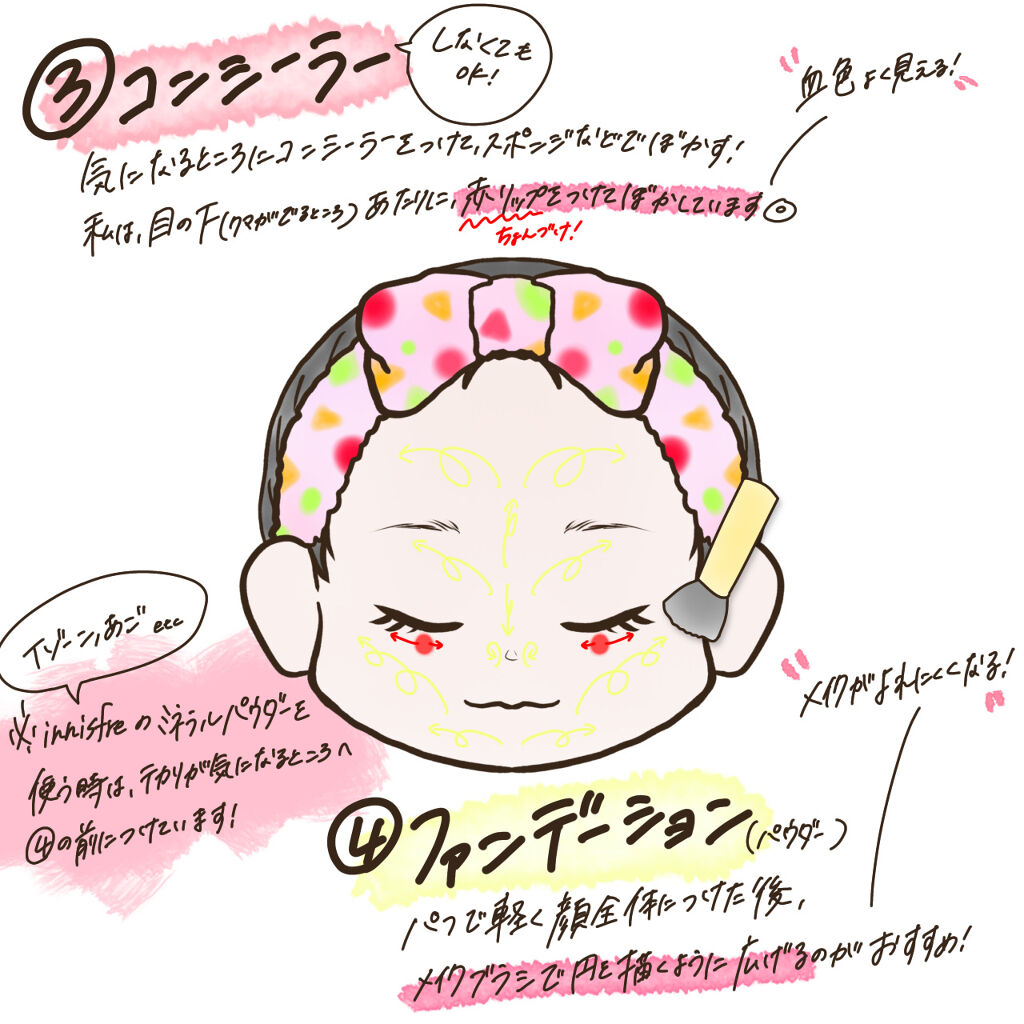 ③コンシーラー
しなくても
OK!
血色よく見える!
気になるところにコンシーラーをつけて、スポンジなどでぼかす!
私は、目の下(クマがでるところ)あたりに、赤リップをつけてぼかしています◎
ちょんづけ!
Tゾーン,あご etc
※innisfreのミネラルパウダーを
使う時は、テカリが気になるところへ
④の前につけています!
メイクがよれにくくなる!
④ファンデーション(パウダー)
パフで軽く顔全体につけた後、
メイクブラシで円を描くように広げるのがおすすめ!